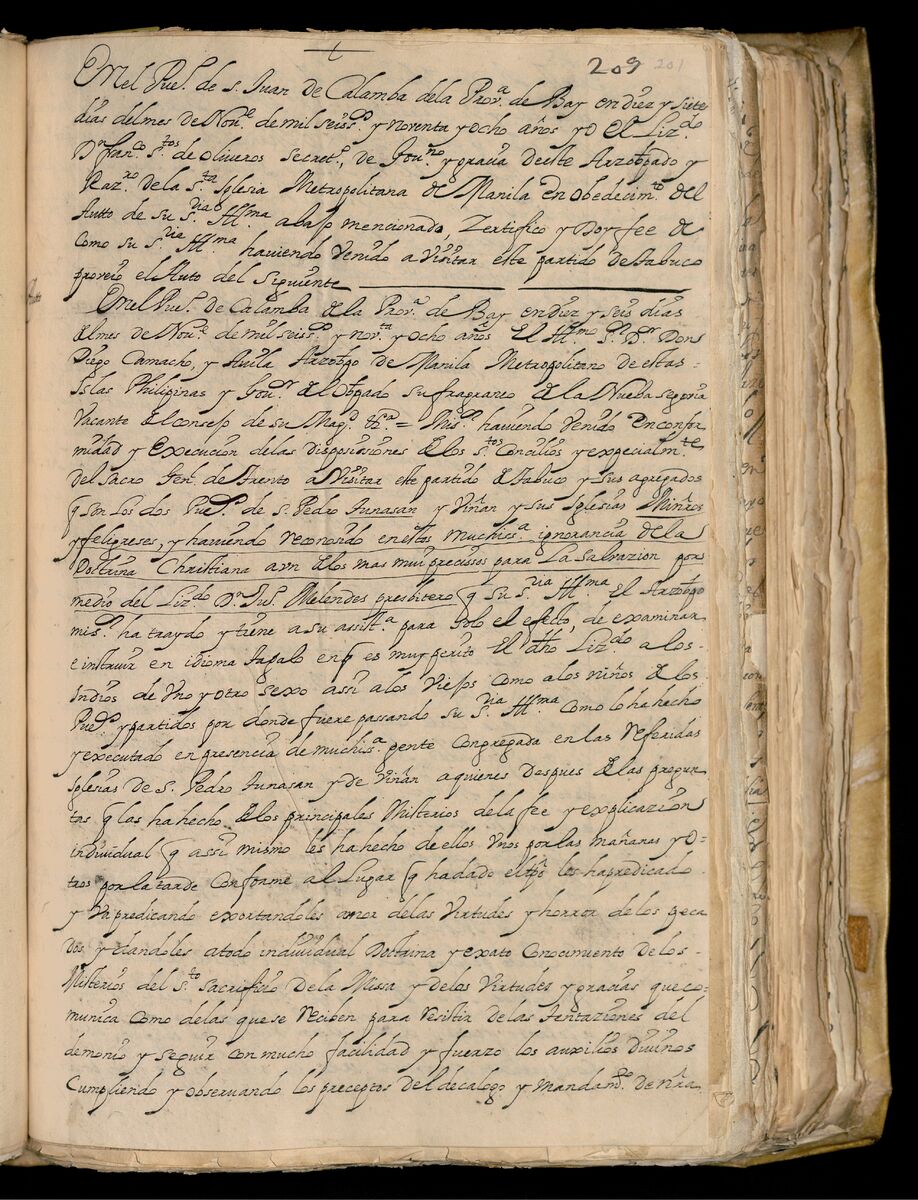 209 201
En el Pueo. de S. Juan de Calamba de la Prova. de Bay en diez y siete
dias del mes de Nove. de mil seissos. y noventa y ocho años yo el Lizdo.
Dn. Franco. Stos. de oliveros Secreto. de Gouno. y gracia deeste Arzobpado y
Razro. de la Sta. Iglesia Metropolitana de Manila en obedecimto. del
Autto de su Sria. Illma. abaxo mencionado, Zertifico y Doy fee de
como su Sria. Illma. haviendo venido a visitar este partido de Tabuco
proveio el Auto del siguiente
Auto
En el Pueo. de Calamba de la Prova. de Bay en diez y seis dias
del mes de Nove. de mil seissos. y novta. y ocho años El Illmo. Sr. Dr. Don
Diego Camacho, y Auila Arzobpo de Manila Metropolitano de estas
Islas Philipinas y Gour. del obpado sufraganeo de la Nueba segovia
Vacante del consejo de su Magd. &a. = Miso. haviendo venido en confor
midad y execucion de las disposiciones de los Stos. Concilios y expecialmte.
del Sacro Gen. de Trento a visitar este partido de Tabuco y sus agregados
q son los dos Pueos. de S. Pedro Tunasan y Viñan y sus Iglesias Minros
y feligreses, y haviendo reconosido en estos muchissa. ignorancia de la
Doctrina Christiana aun de los mas muy precissos para La Salvazion por
medio del Lizdo. Dn. Jus. Melendes presbitero q su Sria. Illma. El Arzobpo
miso. ha traydo y tiene a su assista. para solo el efecto, de examinar
e instruir en idioma tagalo en q es muy perito El dho Lizdo. a los
Indios de Uno y otro sexo assi a los viejos como a los niños de los
Pueos. y partidos por donde fuere passando su Sria. Illma. como lo ha hecho
y executado en presencia de muchissa. gente congregada en las referidas
Iglesias de S. Pedro Tunasan y de Viñan a quienes despues de las pregun
tas q las ha hecho de los principales Misterios de la fee y explicazion
individual q assi mismo les ha hecho de ellos unos por las mañanas y o-
tros por la tarde conforme al Lugar q ha dado el tpo los ha predicado
y Va predicando exortandoles amor de las virtudes y horror de los peca
dos, y dandoles a todo individual Doctrina y exato conocimiento de los
Misterios del Sto. Sacrificio de la Missa y de los Virtudes y gracias que co-
munica como de las que se reciben para resistir de las tentaziones del
demonio y seguir con mucho facilidad y fuerzo los auxilios Divinos
Cumpliendo y observando los preceptos del decalogo y mandamtos. de nra